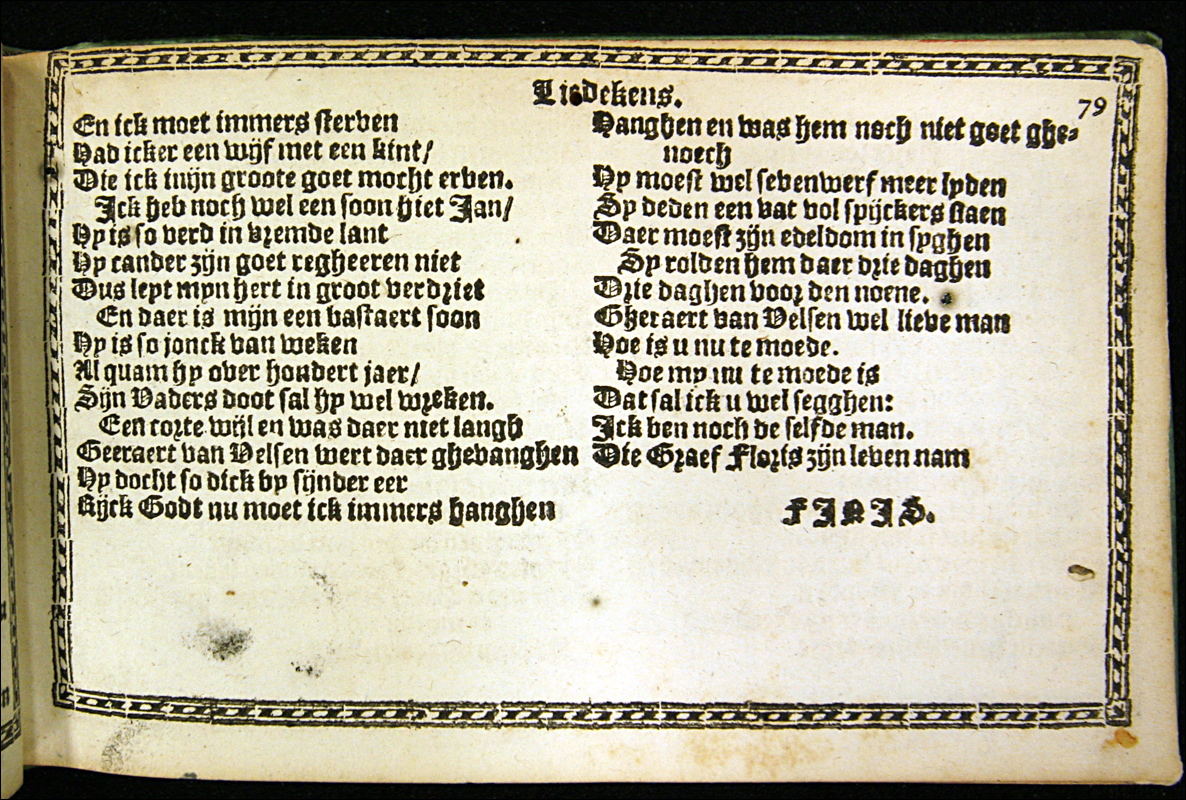 Liedekens.
79
En ick moet immers sterven
Had icker een wijf met een kint/
Die ick mijn groote goet mocht erven.
Ick heb noch wel een soon hiet Jan/
Hy is so verd in vremde lant
Hy cander zijn goet regheeren niet
Dus leyt myn hert in groot verdriet
En daer is mijn een bastaert soon
Hy is so jonck van weken
Al quam hy over hondert jaer/
Sijn Vaders doot sal hy wel wreken.
Een corte wijl en was daer niet langh
Geeraert van Velsen wert daer ghevanghen
Hy docht so dick by sijnder eer
Rijck Godt nu moet ick immers hanghen
Hanghen en was hem noch niet goet ghe-
noech
Hy moest wel sebenwerf meer lyden
Sy deden een vat vol spijckers slaen
Daer moest zijn edeldom in syghen
Sy rolden hem daer drie daghen
Drie daghen voor den noene.
Gheraert van Velsen wel lieve man
Hoe is u nu te moede.
Hoe my nu te moede is
Dat sal ick u wel segghen:
Ick ben noch de selfde man.
Die Graef Floris zijn leven nam
FINIS.